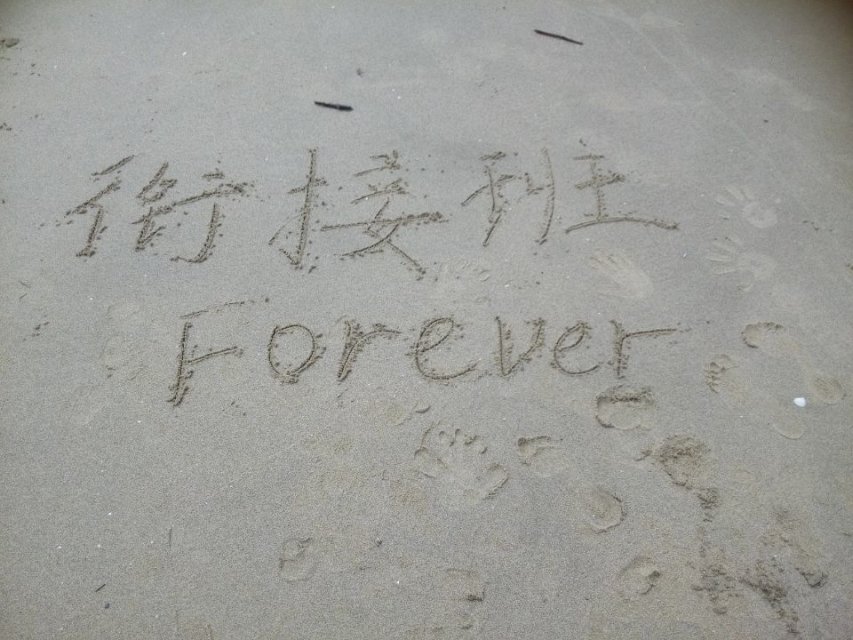 銜接班
Forever